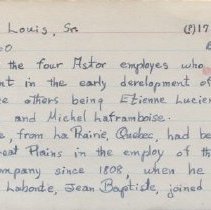 Louis, Sr. (?)17
0
the four Astor employes who
nt in the early development of
e others being Etienne Lucier
and Michel Laframboise.
e, from La Prairie, Quebec, had be
eat Plains in the employ of th
ompany since 1808, when he
Labonte, Jean Baptiste, joined